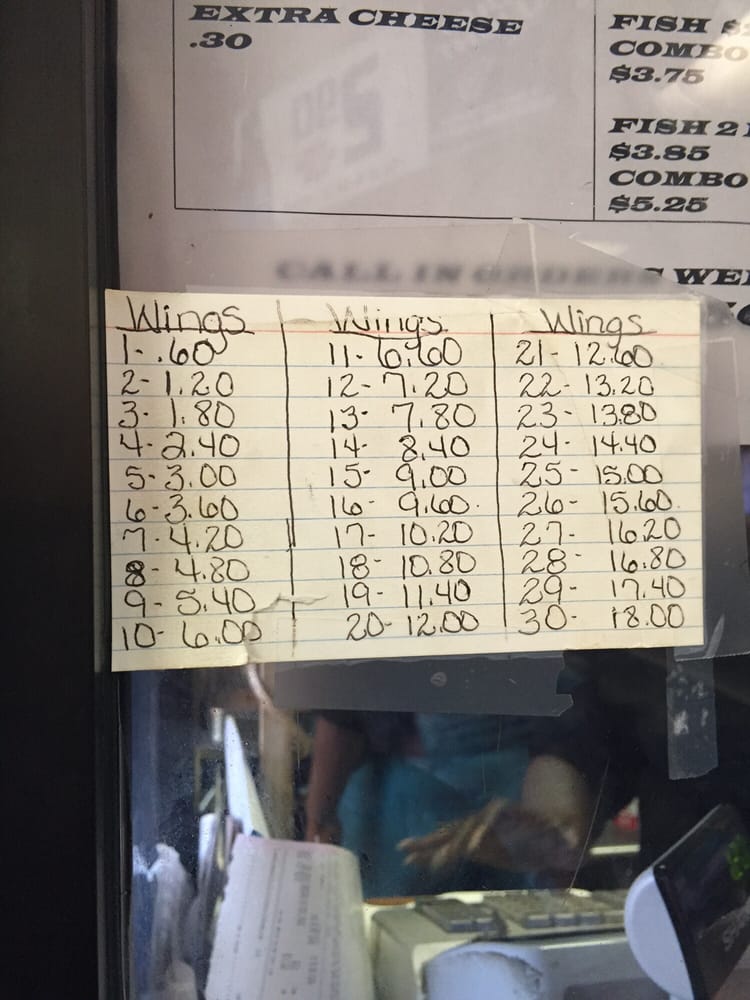 EXTRA CHEESE
.30
FISH
COMBO
$3.75
FISH 2
$3.85
COMBO
$5.25
CALL IN ORDERS WEL
Wings
1- .60
2- 1.20
3- 1.80
4- 2.40
5- 3.00
6- 3.60
7- 4.20
8- 4.80
9- 5.40
10- 6.00
Wings
11- 6.60
12- 7.20
13- 7.80
14- 8.40
15- 9.00
16- 9.60
17- 10.20
18- 10.80
19- 11.40
20- 12.00
Wings
21- 12.60
22- 13.20
23- 13.80
24- 14.40
25- 15.00
26- 15.60
27- 16.20
28- 16.80
29- 17.40
30- 18.00